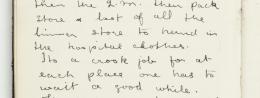 then the Q.M. then pack
store & last of all the
linen store to hand in
the hospital clothes.
Its a crook job for at
each place one has to
wait a good while.